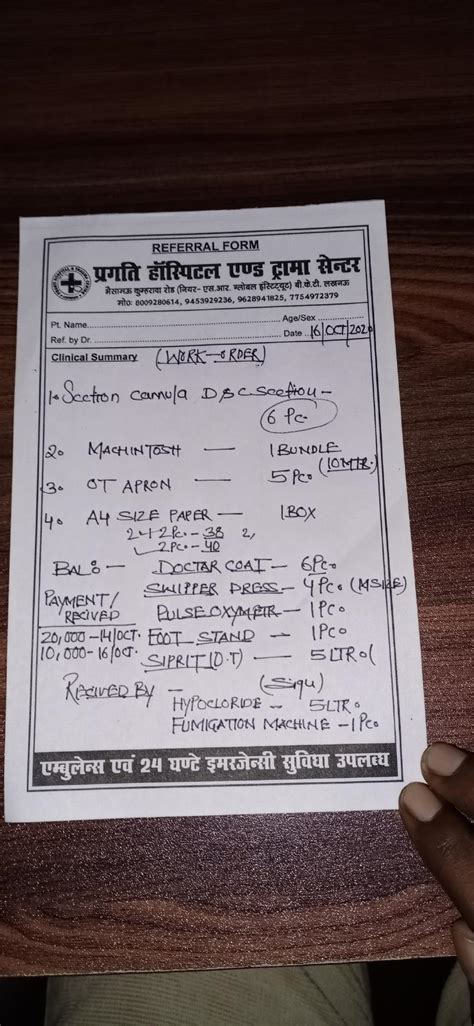 REFERRAL FORM
प्रगति हॉस्पिटल एण्ड ट्रामा सेन्टर
भैसामऊ कुम्हरावा रोड (नियर- एस.आर. ग्लोबल इंस्टिट्यूट) बी.के.टी. लखनऊ
मो०: 8009280614, 9453929236, 9628941825, 7754972379
Pt. Name.......... Age/Sex ..........
Ref. by Dr. .......... Date ..16/OCT/2020
Clinical Summary (WORK-ORDER)
1. Sectron cannula D&C section -
6 Pc.
2. MACHINTOSH — 1 BUNDLE
(10MTR.)
3. OT APRON — 5 PCo
4. A4 SIZE PAPER — 1 BOX
2+2Pc. - 38 2,
2Pc. - 40
BAL: — DOCTAR COAT — 6Pc.
SWIPPER DRESS — 4Pc. (M SIZE)
PAYMENT/
RECIVED PULSE OXYMETR — 1Pc.
20,000 - 14/OCT. FOOT STAND — 1Pc.
10,000 - 16/OCT. SIPRIT (O.T) — 5 LTRo(
RECIVED BY - (Siqu)
HYPOCLORIDE - 5LTR.
FUMIGATION MACHINE - 1Pc.
एम्बुलेन्स एवं 24 घण्टे इमरजेन्सी सुविधा उपलब्ध